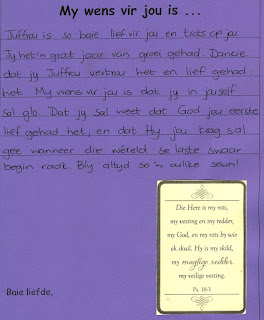 My wens vir jou is ...
Juffrou is so baie lief vir jou en trots op jou
Jy het 'n groot jaar van groei gehad. Dankie
dat jy Juffrou vertrou het en lief gehad
het. My wens vir jou is dat jy in jouself
sal glo. Dat jy sal weet dat God jou eerste
lief gehad het, en dat Hy jou krag sal
gee wanneer die wêreld se laste swaar
begin raak. Bly altyd so 'n oulike seun!
Die Here is my rots,
my vesting en my redder,
my God, en my rots by wie
ek skuil. Hy is my skild,
my magtige redder
my veilige vesting.
Ps. 18:3
Baie liefde,